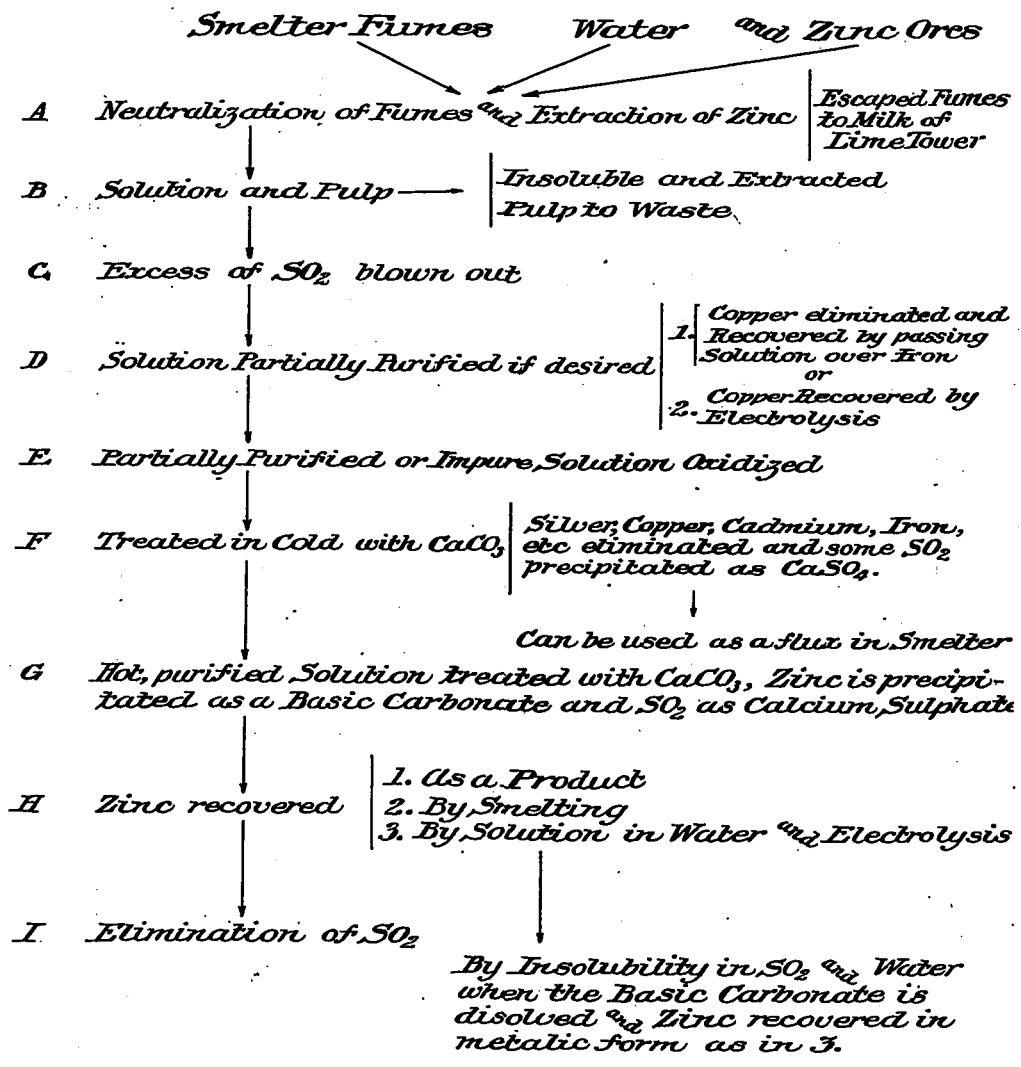 Smelter Fumes Water and Zinc Ores
A Neutralization of Fumes and Extraction of Zinc
Escaped Fumes
to Milk of
Lime Tower
B Solution and Pulp
Insoluble and Extracted
Pulp to Waste
C. Excess of SO₂ blown out
D Solution Partially Purified if desired
1. Copper eliminated and
Recovered by passing
Solution over Iron
or
2. Copper Recovered by
Electrolysis
E. Partially Purified or Impure Solution Oxidized
F Treated in Cold with CaCO₃
Silver, Copper, Cadmium, Iron,
etc eliminated and some SO₂
precipitated as CaSO₄.
Can be used as a flux in Smelter
G Hot, purified Solution treated with CaCO₃, Zinc is precipi-
tated as a Basic Carbonate and SO₂ as Calcium Sulphate
H Zinc recovered
1. As a Product
2. By Smelting
3. By Solution in Water and Electrolysis
I Elimination of SO₂
By Insolubility in SO₂ and Water
when the Basic Carbonate is
disolved and Zinc recovered in
metalic form as in 3.